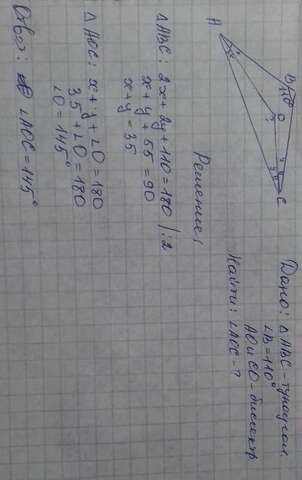 A
B
110°
O
?
C
Дано: △ABC - тупоугол
∠B = 110°
AO и CO - биссектр
Найти: ∠AOC - ?
Решение:
△ABC: 2x + 2y + 110 = 180 | :2
x + y + 55 = 90
x + y = 35
△AOC: x + y + ∠O = 180
35 + ∠O = 180
∠O = 145°
Ответ: ∠AOC = 145°